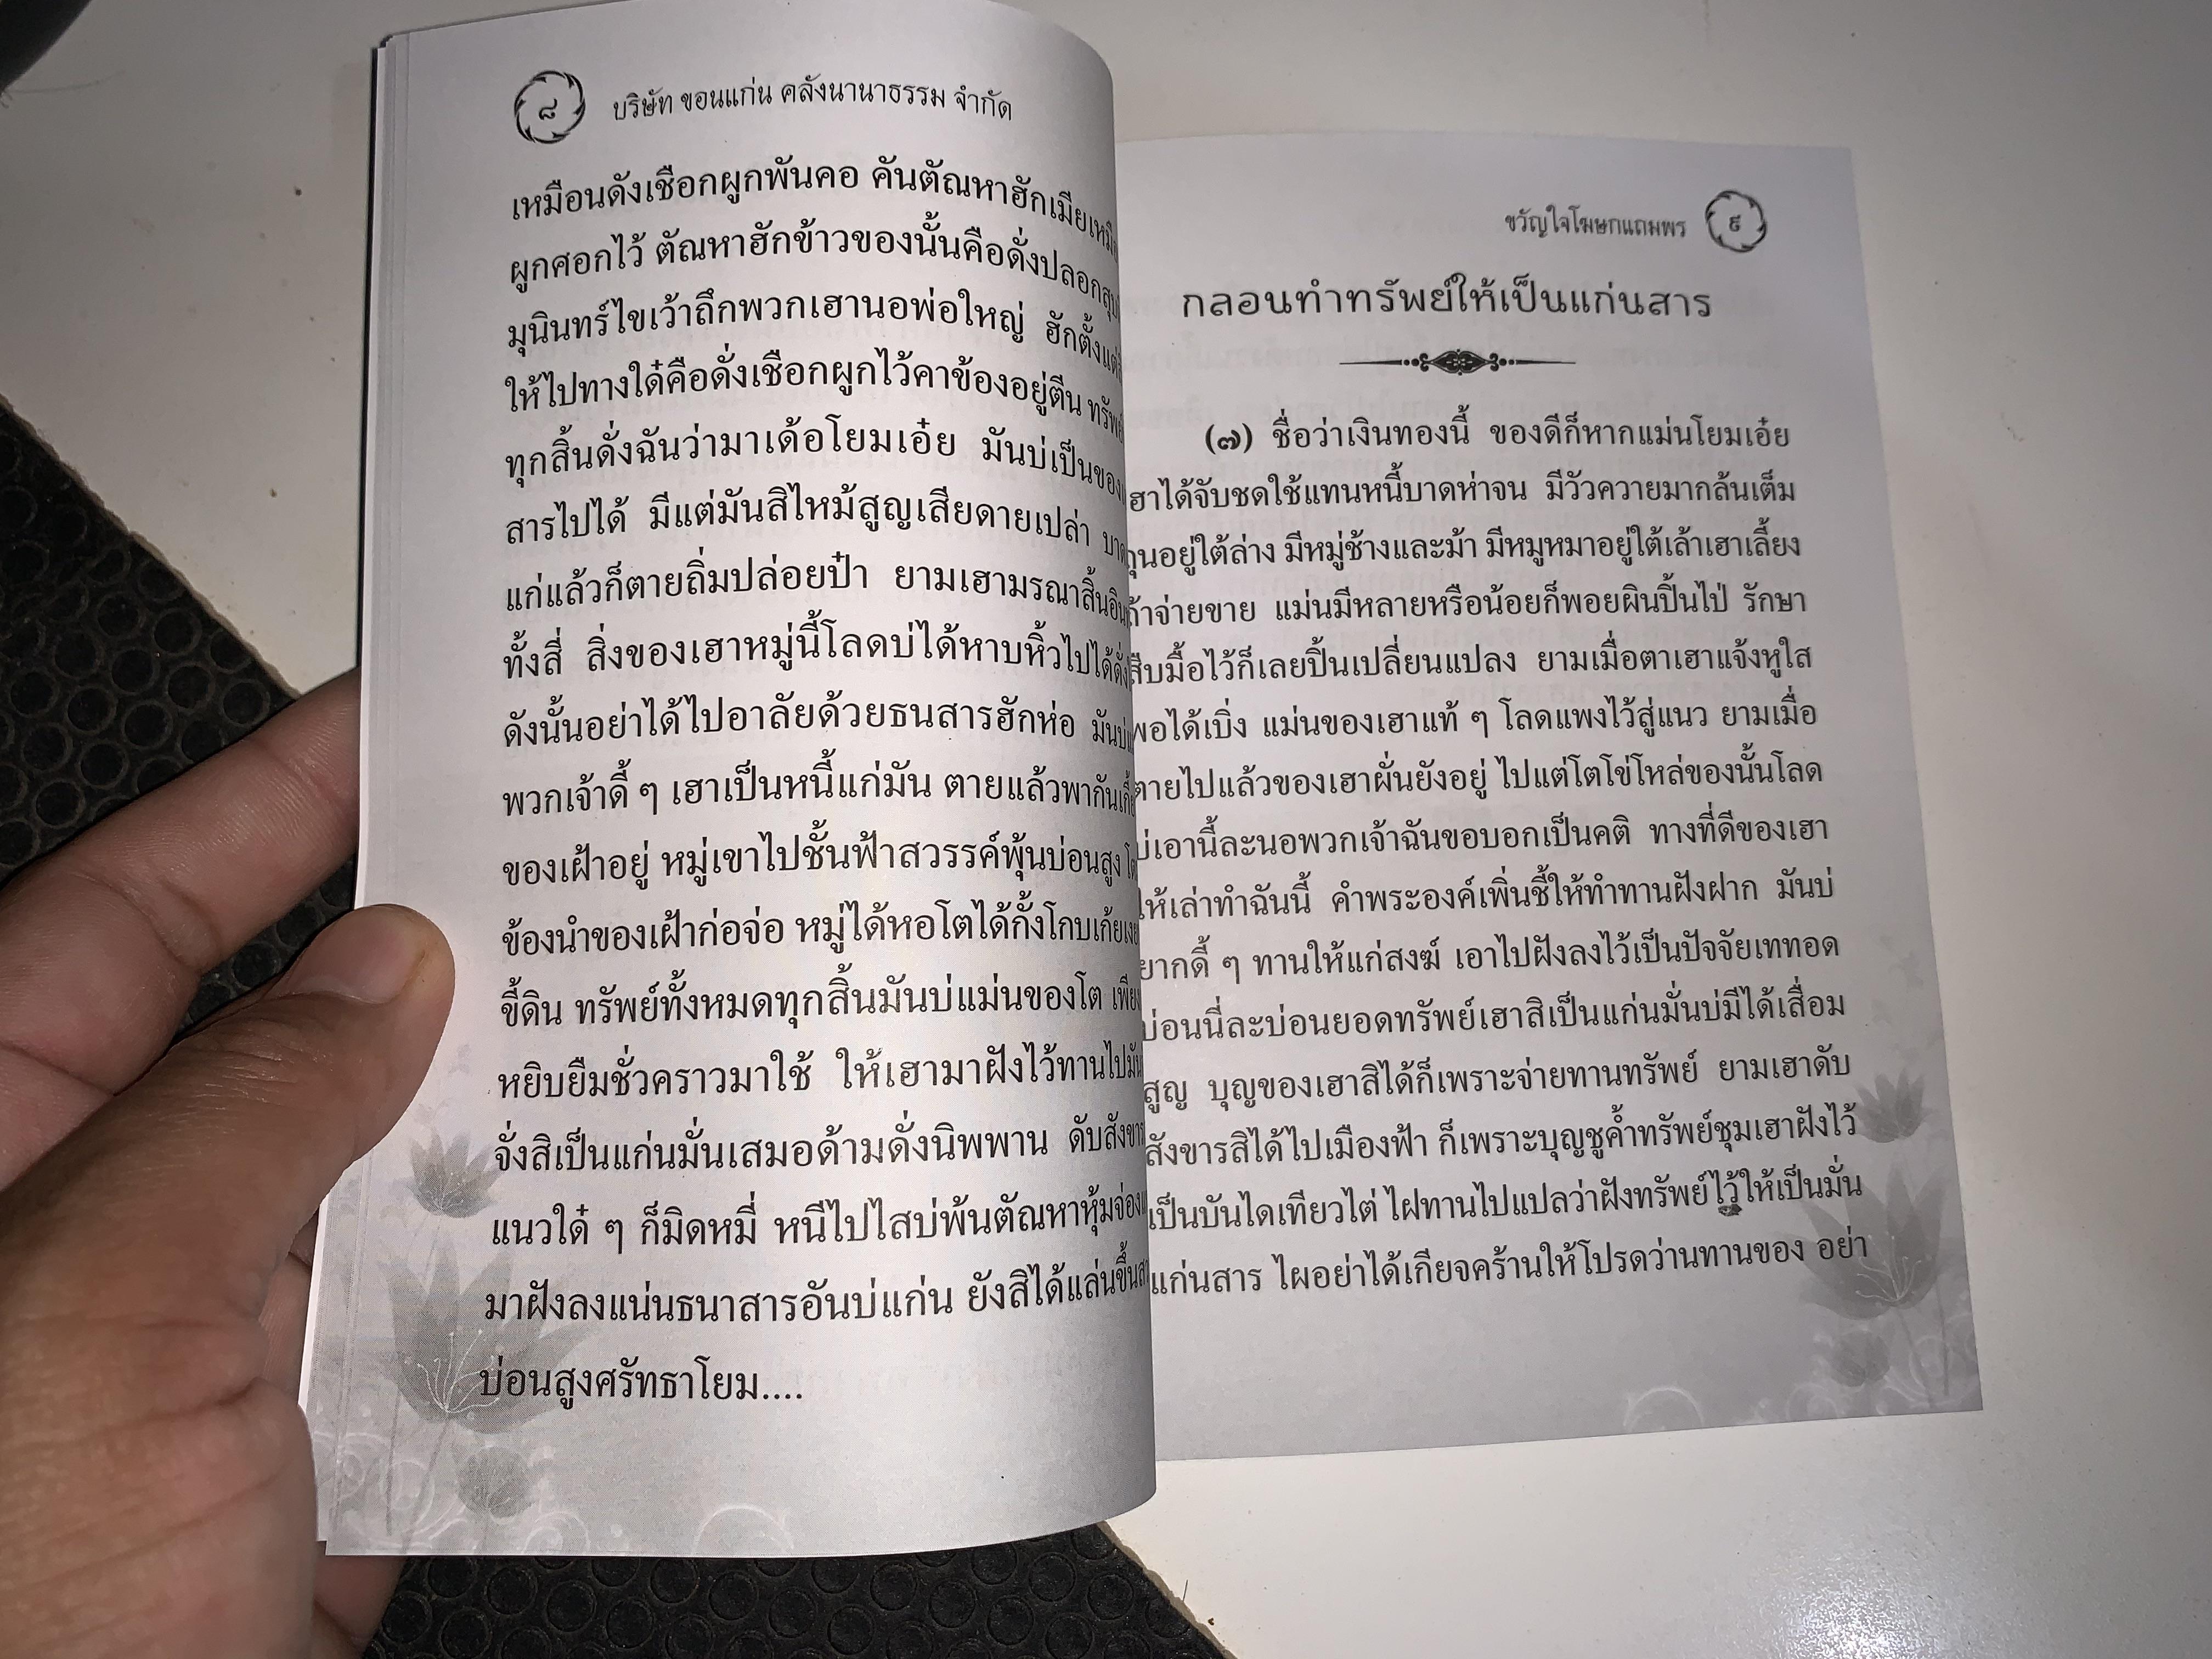 ๘ บริษัท ขอนแก่น คลังนานาธรรม จำกัด
เหมือนดังเชือกผูกพันคอ คันตัณหาฮักเมีย
ผูกศอกไว้ ตัณหาฮักข้าวของนั้นคือดั่งปลอก
มุนินทร์ไขเว้าถึกพวกเฮานอพ่อใหญ่ ฮักตั้ง
ให้ไปทางใด๋คือดั่งเชือกผูกไว้คาข้องอยู่ตีน
ทุกสิ้นดั่งฉันว่ามาเด้อโยมเอ๋ย มันบ่เป็น
สารไปได้ มีแต่มันสิไหม้สูญเสียดายเปล่า
แก่แล้วก็ตายถิ่มปล่อยป๋า ยามเฮามรณาสิ้น
ทั้งสี่ สิ่งของเฮาหมู่นี้โลดบ่ได้หาบหิ้วไปได้
ดังนั้นอย่าได้ไปอาลัยด้วยธนสารฮักห่อ
พวกเจ้าดี้ ๆ เฮาเป็นหนี้แก่มัน ตายแล้วพากัน
ของเฝ้าอยู่ หมู่เขาไปชั้นฟ้าสวรรค์พุ้นบ่อนสูง
ข้องนำของเฝ้าก่อจ่อ หมู่ได้หอโตได้กั้งโกบเก้ย
ขี้ดิน ทรัพย์ทั้งหมดทุกสิ้นมันบ่แม่นของโต
หยิบยืมชั่วคราวมาใช้ ให้เฮามาฝังไว้ทานไป
จั่งสิเป็นแก่นมั่นเสมอด้ามดั่งนิพพาน ดับสังขาร
แนวใด๋ ๆ ก็มิดหมี่ หนีไปไสบ่พ้นตัณหาหุ้ม
มาฝังลงแน่นธนาสารอันบ่แก่น ยังสิได้แล่นขึ้น
บ่อนสูงศรัทธาโยม....
ขวัญใจโฆษกแถมพร ๙
กลอนทำทรัพย์ให้เป็นแก่นสาร
(๗) ชื่อว่าเงินทองนี้ ของดีก็หากแม่นโยมเอ๋ย
ฮาได้จับชดใช้แทนหนี้บาดห่าจน มีวัวควายมากล้นเต็ม
อยู่ใต้ล่าง มีหมู่ช้างและม้า มีหมูหมาอยู่ใต้เล้าเฮาเลี้ยง
จ่ายขาย แม่นมีหลายหรือน้อยก็พอยผินปิ้นไป่ รักษา
สืบมื้อไว้ก็เลยปิ้นเปลี่ยนแปลง ยามเมื่อตาเฮาแจ้งหูใส
พอได้เบิ่ง แม่นของเฮาแท้ ๆ โลดแพงไว้สู่แนว ยามเมื่อ
ตายไปแล้วของเฮาผั่นยังอยู่ ไปแต่โตโข่โหล่ของนั้นโลด
บ่เอานี้ละนอพวกเจ้าฉันขอบอกเป็นคติ ทางที่ดีของเฮา
ให้เล่าทำฉันนี้ คำพระองค์เพิ่นชี้ให้ทำทานฝังฝาก มันบ่
ยากดี้ ๆ ทานให้แก่สงฆ์ เอาไปฝังลงไว้เป็นปัจจัยเททอด
บ่อนนี่ละบ่อนยอดทรัพย์เฮาสิเป็นแก่นมั่นบ่มีได้เสื่อม
สูญ บุญของเฮาสิได้ก็เพราะจ่ายทานทรัพย์ ยามเฮาดับ
สังขารสิได้ไปเมืองฟ้า ก็เพราะบุญชูค้ำทรัพย์ชุมเฮาฝังไว้
เป็นบันไดเทียวไต่ ไฝทานไปแปลว่าฝังทรัพย์ไว้ให้เป็นมั่น
แก่นสาร ไผอย่าได้เกียจคร้านให้โปรดว่านทานของ อย่า